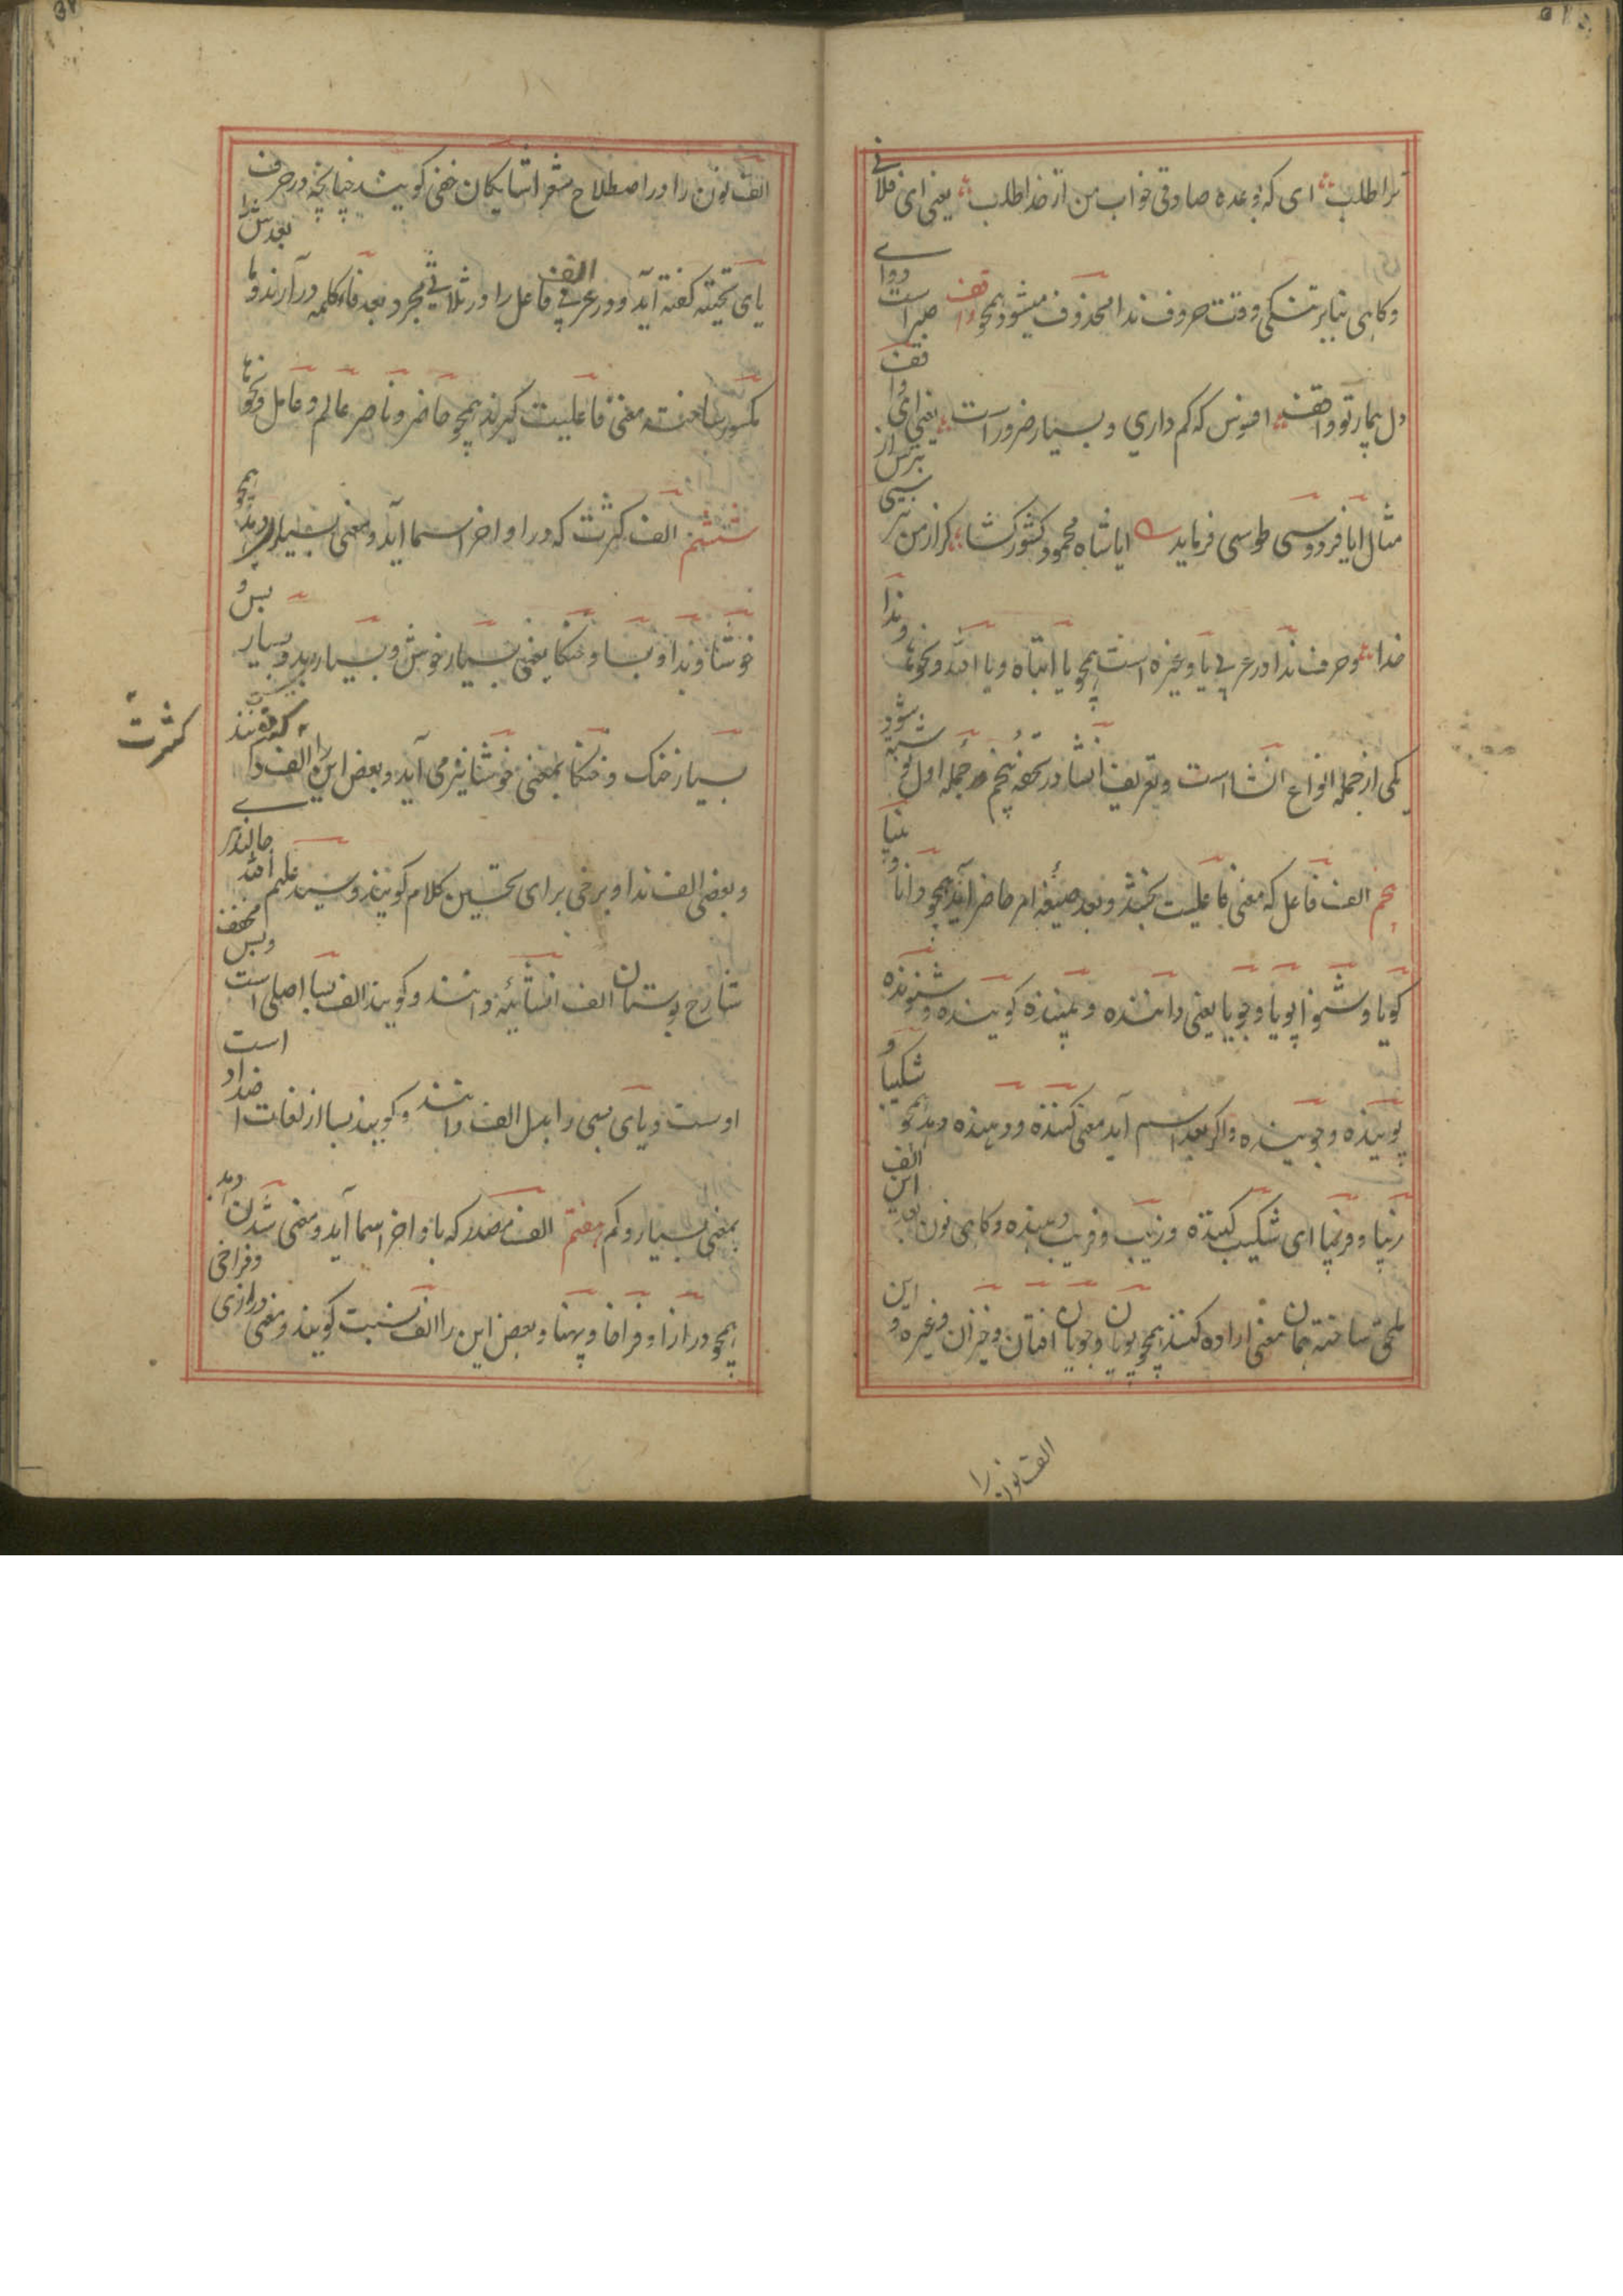 ترا طلب ای که وعده صادقی خواب من از خدا طلب یعنی ای فلانی
و کاهی بنابر تنکی وقت حروف ندا محذوف میشود همچو واقف دوای صبر است
دل بیمار تو واقف افسوس که کم داری و بسیار ضرور است یعنی ای واقف
مثال ایا فردوسی طوسی فرماید ایا شاه محمود کشور کشا کر از من نترسی بترس از
خدا و حرف ندا در عربی یا و غیره است همچو یا ابتاه و یا الله و نحوها و ندا
یکی از جمله انواع انشا است و تعریف انشا در تحفه پنجم در جمله اول نوشته شود
پنجم الف فاعل که معنی فاعلیت بخشد و بعد صیغه امر حاضر آید همچو دانا و بینا
کویا و شنوا پویا و جویا یعنی داننده و بیننده کوینده و شنونده
پوینده و جوینده و اکر بعد اسم آید معنی کننده و دهنده دهد همچو شکیبا و
زیبا و فریبا ای شکیب کننده و زیب و فریب دهنده و کاهی نون بعد این الف
ملحق ساخته همان معنی اراده کنند همچو پویان و جویان افتان و خیزان و غیره و این
الف نون را
الف نون را در اصطلاح شعرا شایکان خفی کویند چنانچه در حرف
یای تحتیه کفته آید و در عربی الف فاعل را در ثلاثی مجرد بعد فاء کلمه در آرند و ما بعدش را
مکسور ساخته معنی فاعلیت کیرند همچو حاضر و ناصر عالم و عامل و نحوها
ششم الف کثرت که در اواخر اسما آید و معنی بسیار دهد همچو
خوشا و بدا و بسا و خنکا یعنی بسیار خوش و بسیار بد و بسیار بس و
بسیار خنک و خنکا بمعنی خوشا نیز می آید و بعض این را الف کثرت کویند
کثرت
و بعضی الف ندا و برخی برای تحسین کلام کویند و سید علیم الله جالندری
شارح بوستان الف انشائیه دانند و کویند الف بسا اصلی است و بس مخفف
اوست و یای بسی را بدل الف دانند و کویند بسا از لغات اضداد است
بمعنی بسیار و کم هفتم الف مصدر که باواخر اسما آید و معنی شدن دهد
همچو درازا و فراخا و پهنا و بعض این را الف نسبت کویند و معنی درازی و فراخی